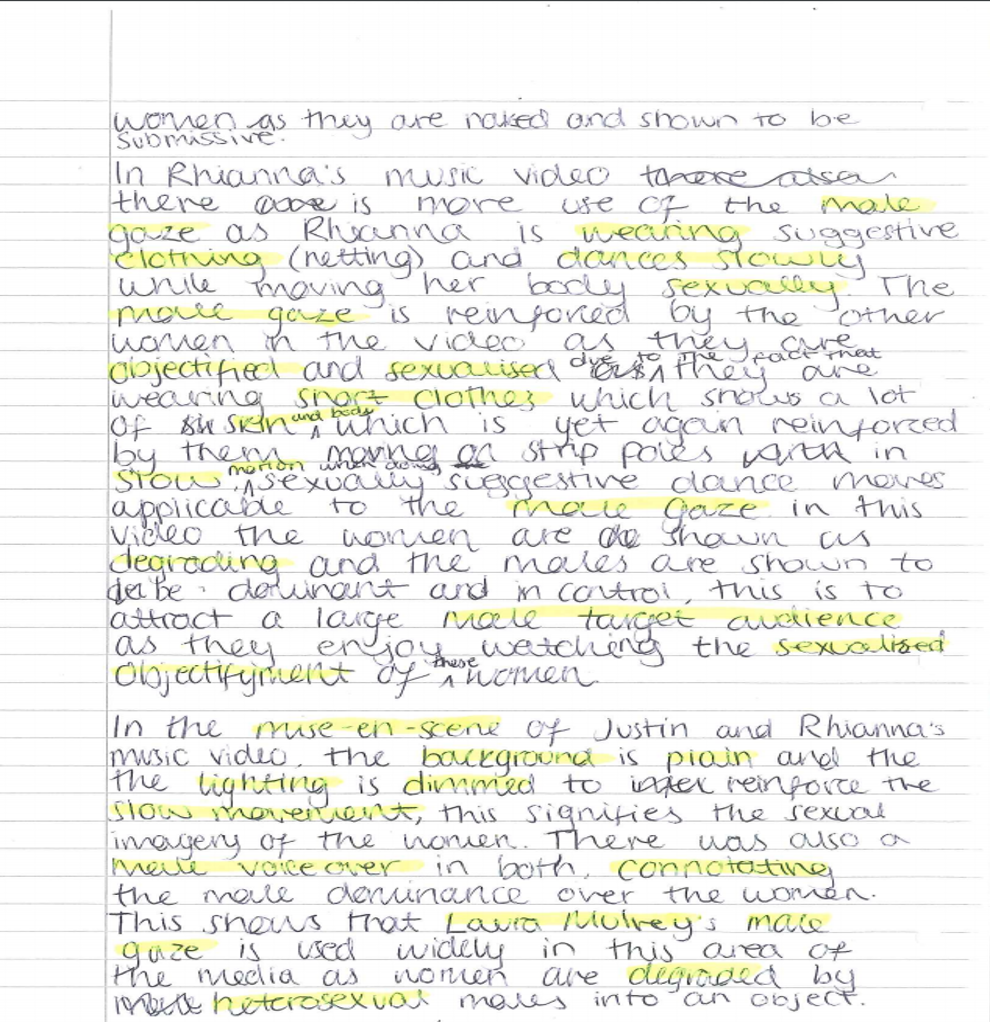 women as they are naked and shown to be
submissive.
In Rhianna's music video there also
there are is more use of the male
gaze as Rhianna is wearing suggestive
clothing (netting) and dances slowly
while moving her body sexually. The
male gaze is reinforced by the other
women in the video as they are
objectified and sexualised due to the fact that they are
wearing short clothes which shows a lot
of skin and body which is yet again reinforced
by them moving on strip poles with in
slow motion when doing sexually suggestive dance moves
applicable to the male gaze in this
video the women are shown as
degrading and the males are shown to
be dominant and in control, this is to
attract a large male target audience
as they enjoy watching the sexualised
objectifyment of these women.
In the mise-en-scene of Justin and Rhianna's
music video, the background is plain and the
the lighting is dimmed to reinforce the
slow movement, this signifies the sexual
imagery of the women. There was also a
male voiceover in both, connotating
the male dominance over the women.
This shows that Laura Mulvey's male
gaze is used widely in this area of
the media as women are degraded by
heterosexual males into an object.